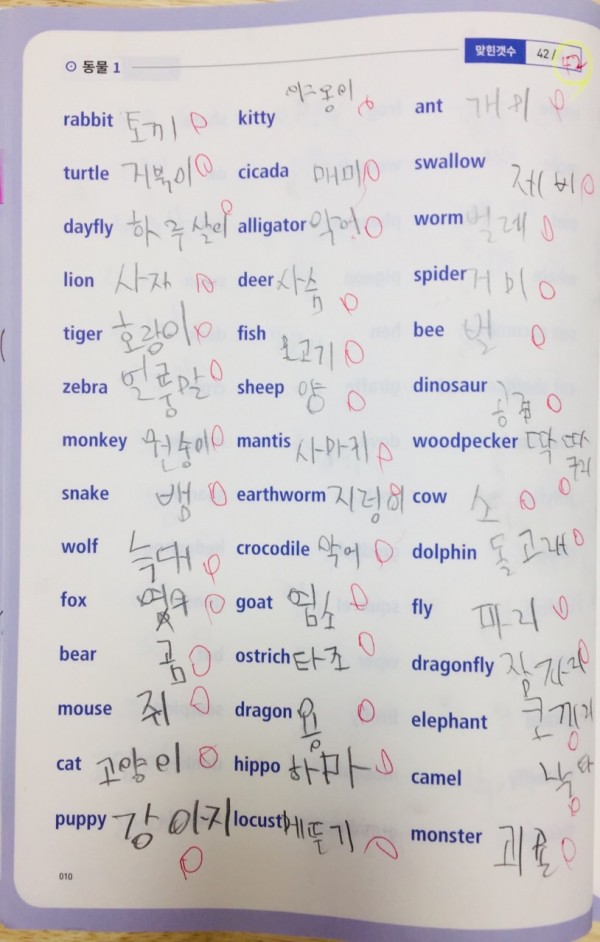 동물 1
맞힌갯수 42 / 42
rabbit 토끼
turtle 거북이
dayfly 하루살이
lion 사자
tiger 호랑이
zebra 얼룩말
monkey 원숭이
snake 뱀
wolf 늑대
fox 여우
bear 곰
mouse 쥐
cat 고양이
puppy 강아지
kitty
cicada 매미
alligator 악어
deer 사슴
fish 물고기
sheep 양
mantis 사마귀
earthworm 지렁이
crocodile 악어
goat 염소
ostrich 타조
dragon 용
hippo 하마
locust 메뚜기
ant 개미
swallow 제비
worm 벌레
spider 거미
bee 벌
dinosaur 공룡
woodpecker 딱따
구리
cow 소
dolphin 돌고래
fly 파리
dragonfly 잠자리
elephant 코끼리
camel 낙타
monster 괴물
010